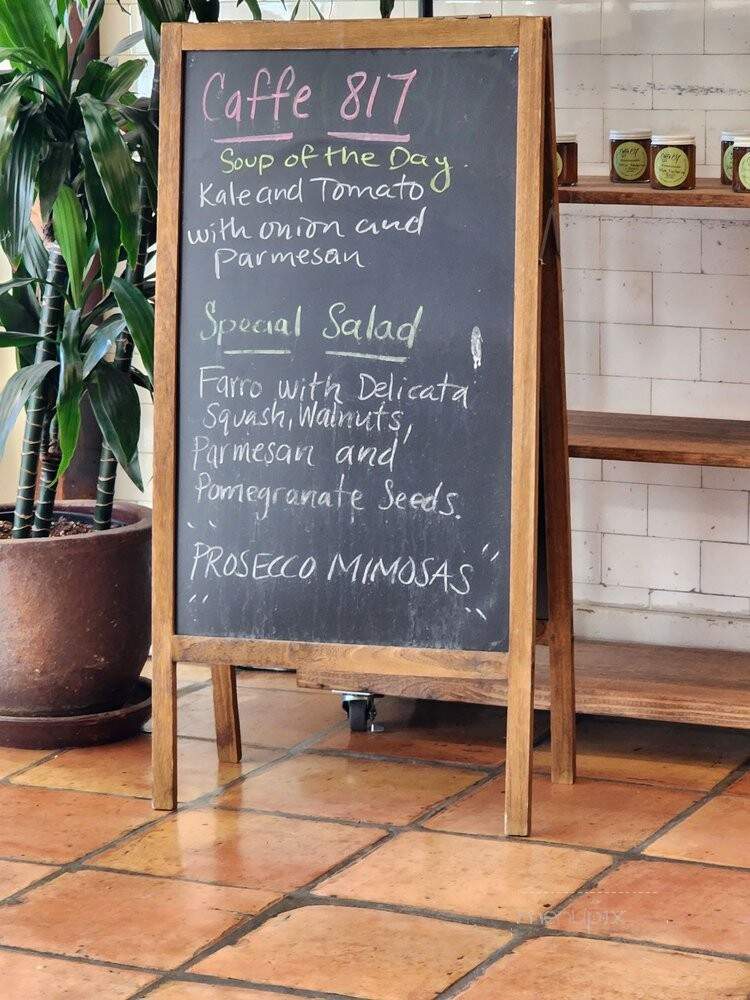 Caffe 817
Soup of the Day
Kale and Tomato
with onion and
Parmesan
Special Salad
Farro with Delicata
Squash, Walnuts,
Parmesan and
Pomegranate Seeds.
PROSECCO MIMOSAS
menupix